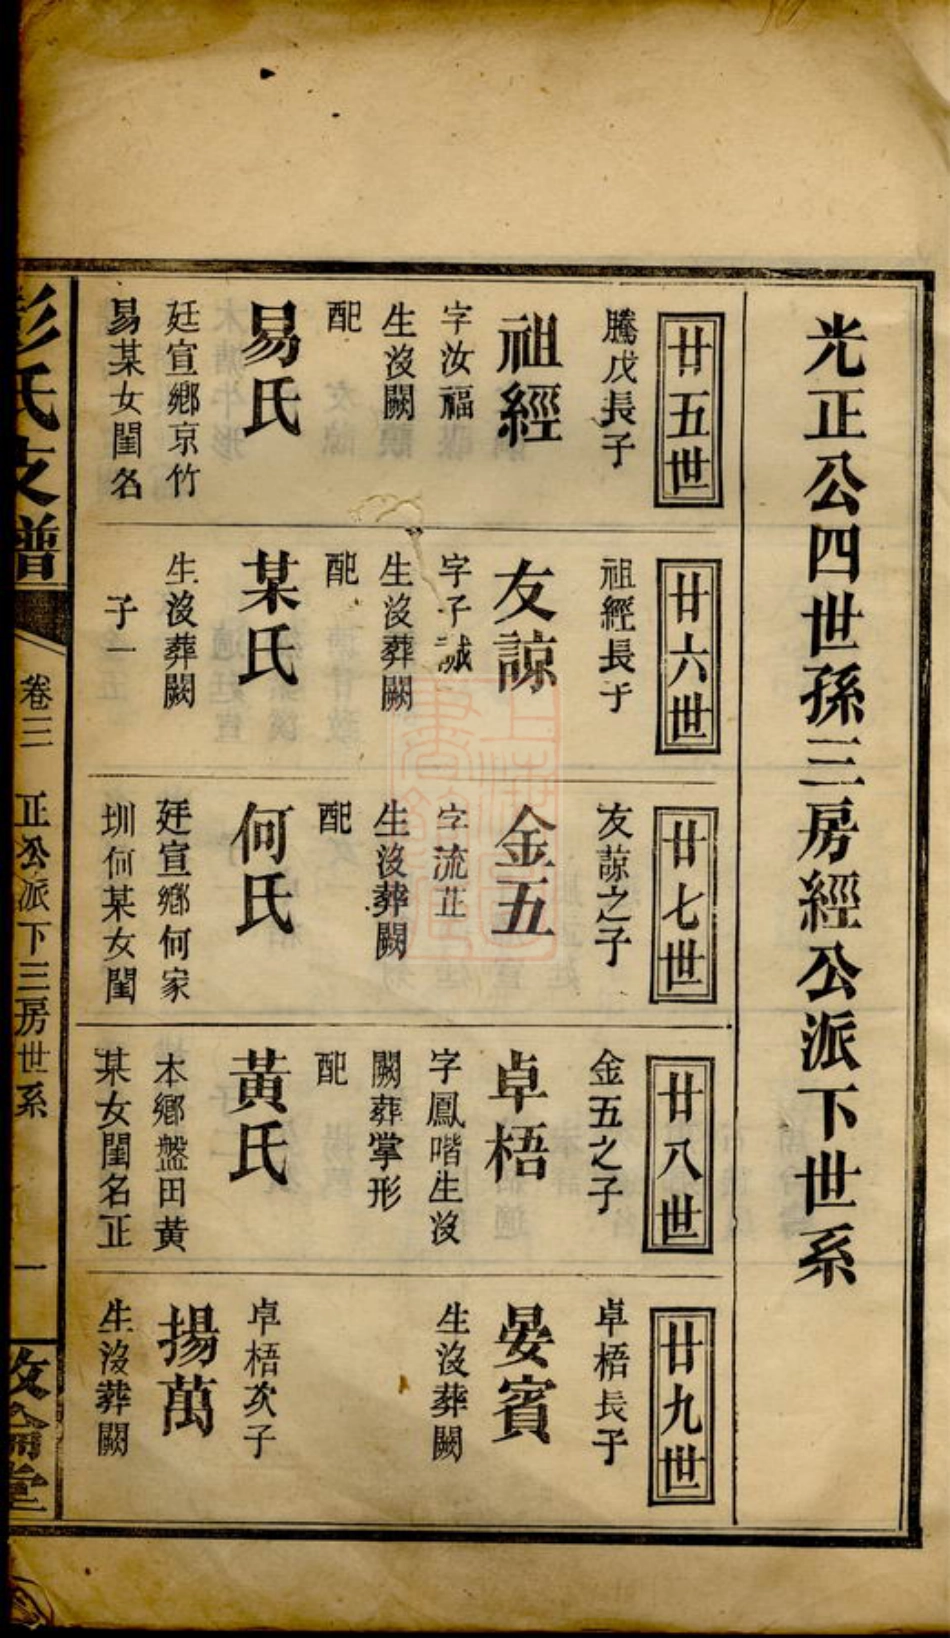 光正公四世孫三房經公派下世系
廿五世
騰戊長子
祖經
字汝福
生沒闕
配
易氏
廷宣鄉京竹
易某女閨名
廿六世
祖經長子
友諒
字子誠
生沒葬闕
配
某氏
生沒葬闕
子一
廿七世
友諒之子
金五
字流芷
生沒葬闕
配
何氏
廷宣鄉何家
圳何某女閨
廿八世
金五之子
卓梧
字鳳喈生沒
闕葬掌形
配
黃氏
本鄉盤田黃
某女閨名正
廿九世
卓梧長子
晏賓
生沒葬闕
卓梧次子
揚萬
生沒葬闕
彭氏支譜
卷三 正公派下三房世系 一
攸倫堂